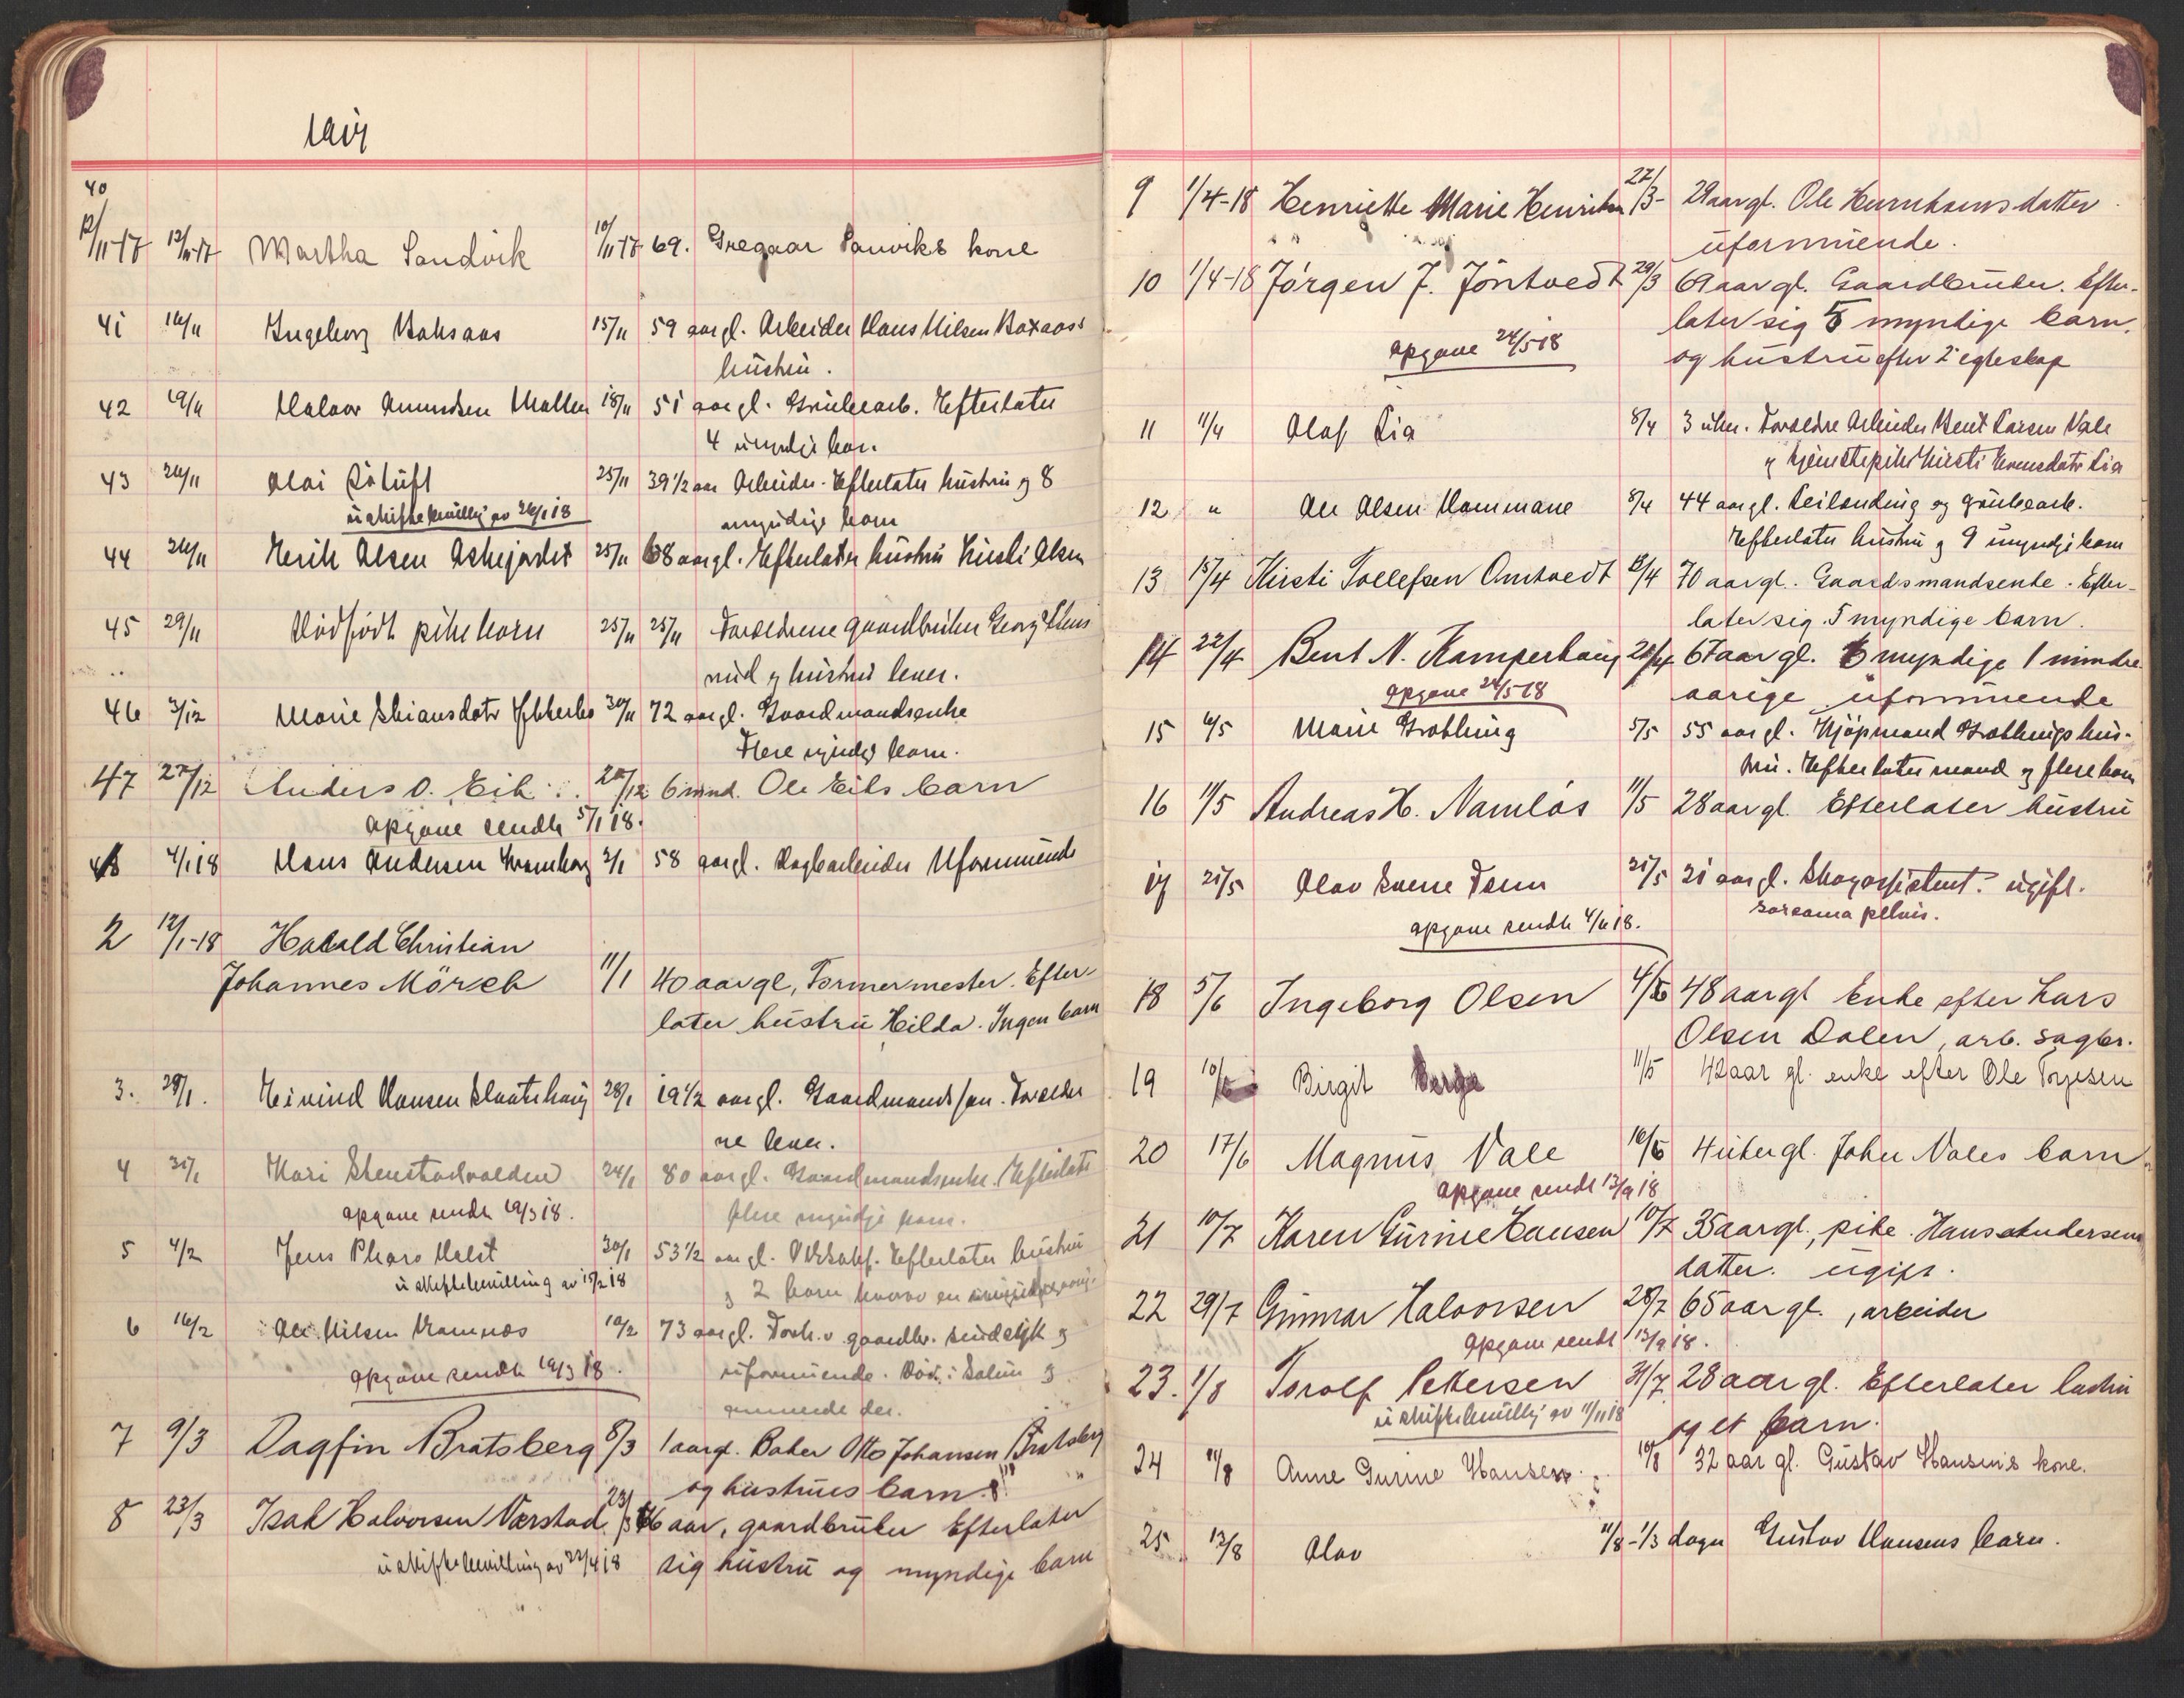 1917
40
12/11-17 12/11-17 Martha Sandvik 10/11-17 69. Gregaar Sanviks kone
41 16/11 Ingeborg Boksaas 15/11 59 aar gl. Arbeider Hans Nilsen Boxaass
hustru.
42 19/11 Halvor Amundsen Mollen 18/11 51 aar gl. Grubearb. Efterlater
4 umyndige barn
43 26/11 Olai 25/11 39 1/2 aar Arbeider. Efterlater hustru og 8
uskiftebevillg av 26/1 18 umyndige barn
44 26/11 Erik Olsen Askejordet 25/11 68 aar gl. Efterlater hustru Kirsti Olsen
45 29/11 Dødfødt pikebarn 25/11 25/11 Forældrene gaardbruker Georg Stens
rud og hustru lever.
46 3/12 Marie 30/11 72 aar gl. Gaardmandsenke
Flere myndige barn.
47 27/12 Anders O. Eik 20/12 6 mnd. Ole Eiks barn
opgave sendt 5/1 18.
1 4/1 18 Hans Andersen 2/1 58 aar gl. Dagarbeider Uformuende
2 12/1-18 Harald Christian
Johannes Mörch 11/1 40 aar gl, Formermester. Efter-
later hustru Hilda. Ingen barn
3. 29/1. Eivind Hansen Slaatehaug 28/1 19 1/2 aar gl. Gaardmandssøn. Forældre
ne lever.
4 31/1 Kari Stenstadvolden 24/1 80 aar gl. Gaardmandsenke. Efterlater
opgave sendt 19/3 18. flere myndige barn.
5 4/2 Jens Pharo Holst 30/1 53 1/2 aar gl. Efterlater hustru
uskiftebevilling av 15/2 18 og 2 barn hvorav en
6 16/2 Ole Nilsen 10/2 73 aar gl. Forh.v. gaardbr. og
opgave sendt 19/3 18. uformuende. Død i Solum og
der.
7 9/3 Dagfin Bratsberg 8/3 1 aar gl. Baker Otto Johansen Bratsberg
og hustrues barn.
8 23/3 Isak Halvorsen Værstad 23/3 aar, gaardbruker Efterlater
uskiftebevilling av 22/4 18 sig hustru og myndige barn
9 1/4-18 Henriette Marie Henriksen 27/3- 29 aar gl. Ole Henriksens datter
uformuende.
10 1/4-18 Jörgen J. Jöntvedt 29/3 69 aar gl. Gaardbruker. Efter-
later sig 5 myndige barn.
opgave 24/5 18 og hustru efter 2 egteskap
11 11/4 Olaf Lia 8/4 3 uker. Forældre Arbeider Bent Larsen Vale
og tjenestepike Kirsti Evensdatr Lia
12 " Ole Olsen Hammane 8/4 44 aar gl. Leilending og grubearb.
Efterlater hustru og 9 umyndige barn
13 15/4 Kirsti Tollefsen Omtvedt 12/4 70 aar gl. Gaardsmandsenke. Efter-
later sig 5 myndige barn.
14 22/4 Bent N. Kamperhaug 20/4 67 aar gl. 6 myndige 1 mindre
opgave 24/5 18 aarige uformuende
15 6/5 Marie Grobling 5/5 55 aar gl. Kjöpmand Groblings hus-
tru. Efterlater mand og flere barn
16 11/5 Andreas H. Namlös 11/5 28 aar gl. Efterlater hustru
17 21/5 Olav Sverre 21/5 21 aar gl. Skogassistent. ugift.
sarcoma pelvis.
opgave sendt 4/6 18.
18 5/6 Ingeborg Olsen 4/6 48 aar gl Enke efter Lars
Olsen Dalen, arb. sagbr.
19 10/6 Birgit Berge 11/5 42 aar gl. enke efter Ole Torjesen
20 17/6 Magnus Vale 16/6 4 uker gl. John Vales barn
opgave sendt 13/9 18
21 10/7 Karen Gurine Hansen 10/7 35 aar gl., pike. Hans Andersens
datter. ugift.
22 29/7 Gunnar Halvorsen 28/7 65 aar gl., arbeider
opgave sendt 13/9 18.
23. 1/8 Torolf Pettersen 31/7 28 aar gl. Efterlater hustru
uskiftebevillg av 11/11 18 og et barn.
24 11/8 Anne Gurine Hansen 10/8 32 aar gl. Gustav Hansens kone.
25 13/8 Olav 11/8 - 1/3 dager Gustav Hansens barn.